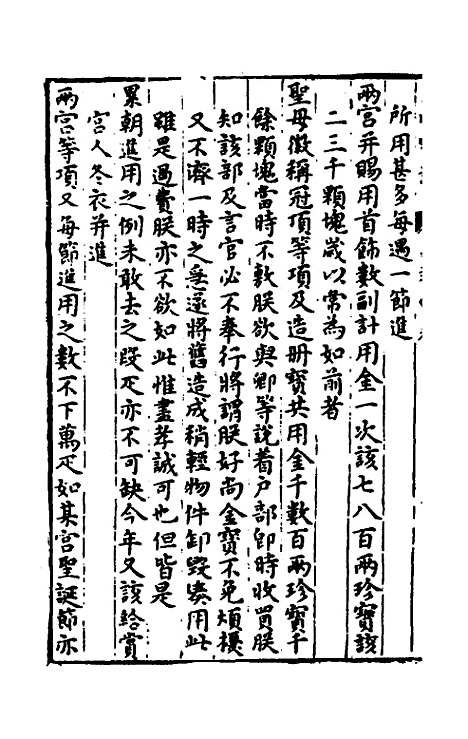 所用甚多每遇一節進
兩宮并賜用首飾數副計用金一次該七八百兩珍寶該
二三千顆塊歲以常為如前者
聖母徽稱冠頂等項及造册寶共用金千數百兩珍寶千
餘顆塊當時不敷朕欲與卿等說着户部卽時收買朕
知該部及言官必不奉行將謂朕好尚金寶不免煩擾
又不濟一時之無遂將舊造成稍輕物件卸毀湊用此
雖是過費朕亦不欲如此惟盡孝誠可也但皆是
累朝進用之例未敢去之段疋亦不可缺今年又該給賞
宮人冬衣并進
兩宮等項又每節進用之數不下萬疋如某宮聖誕節亦